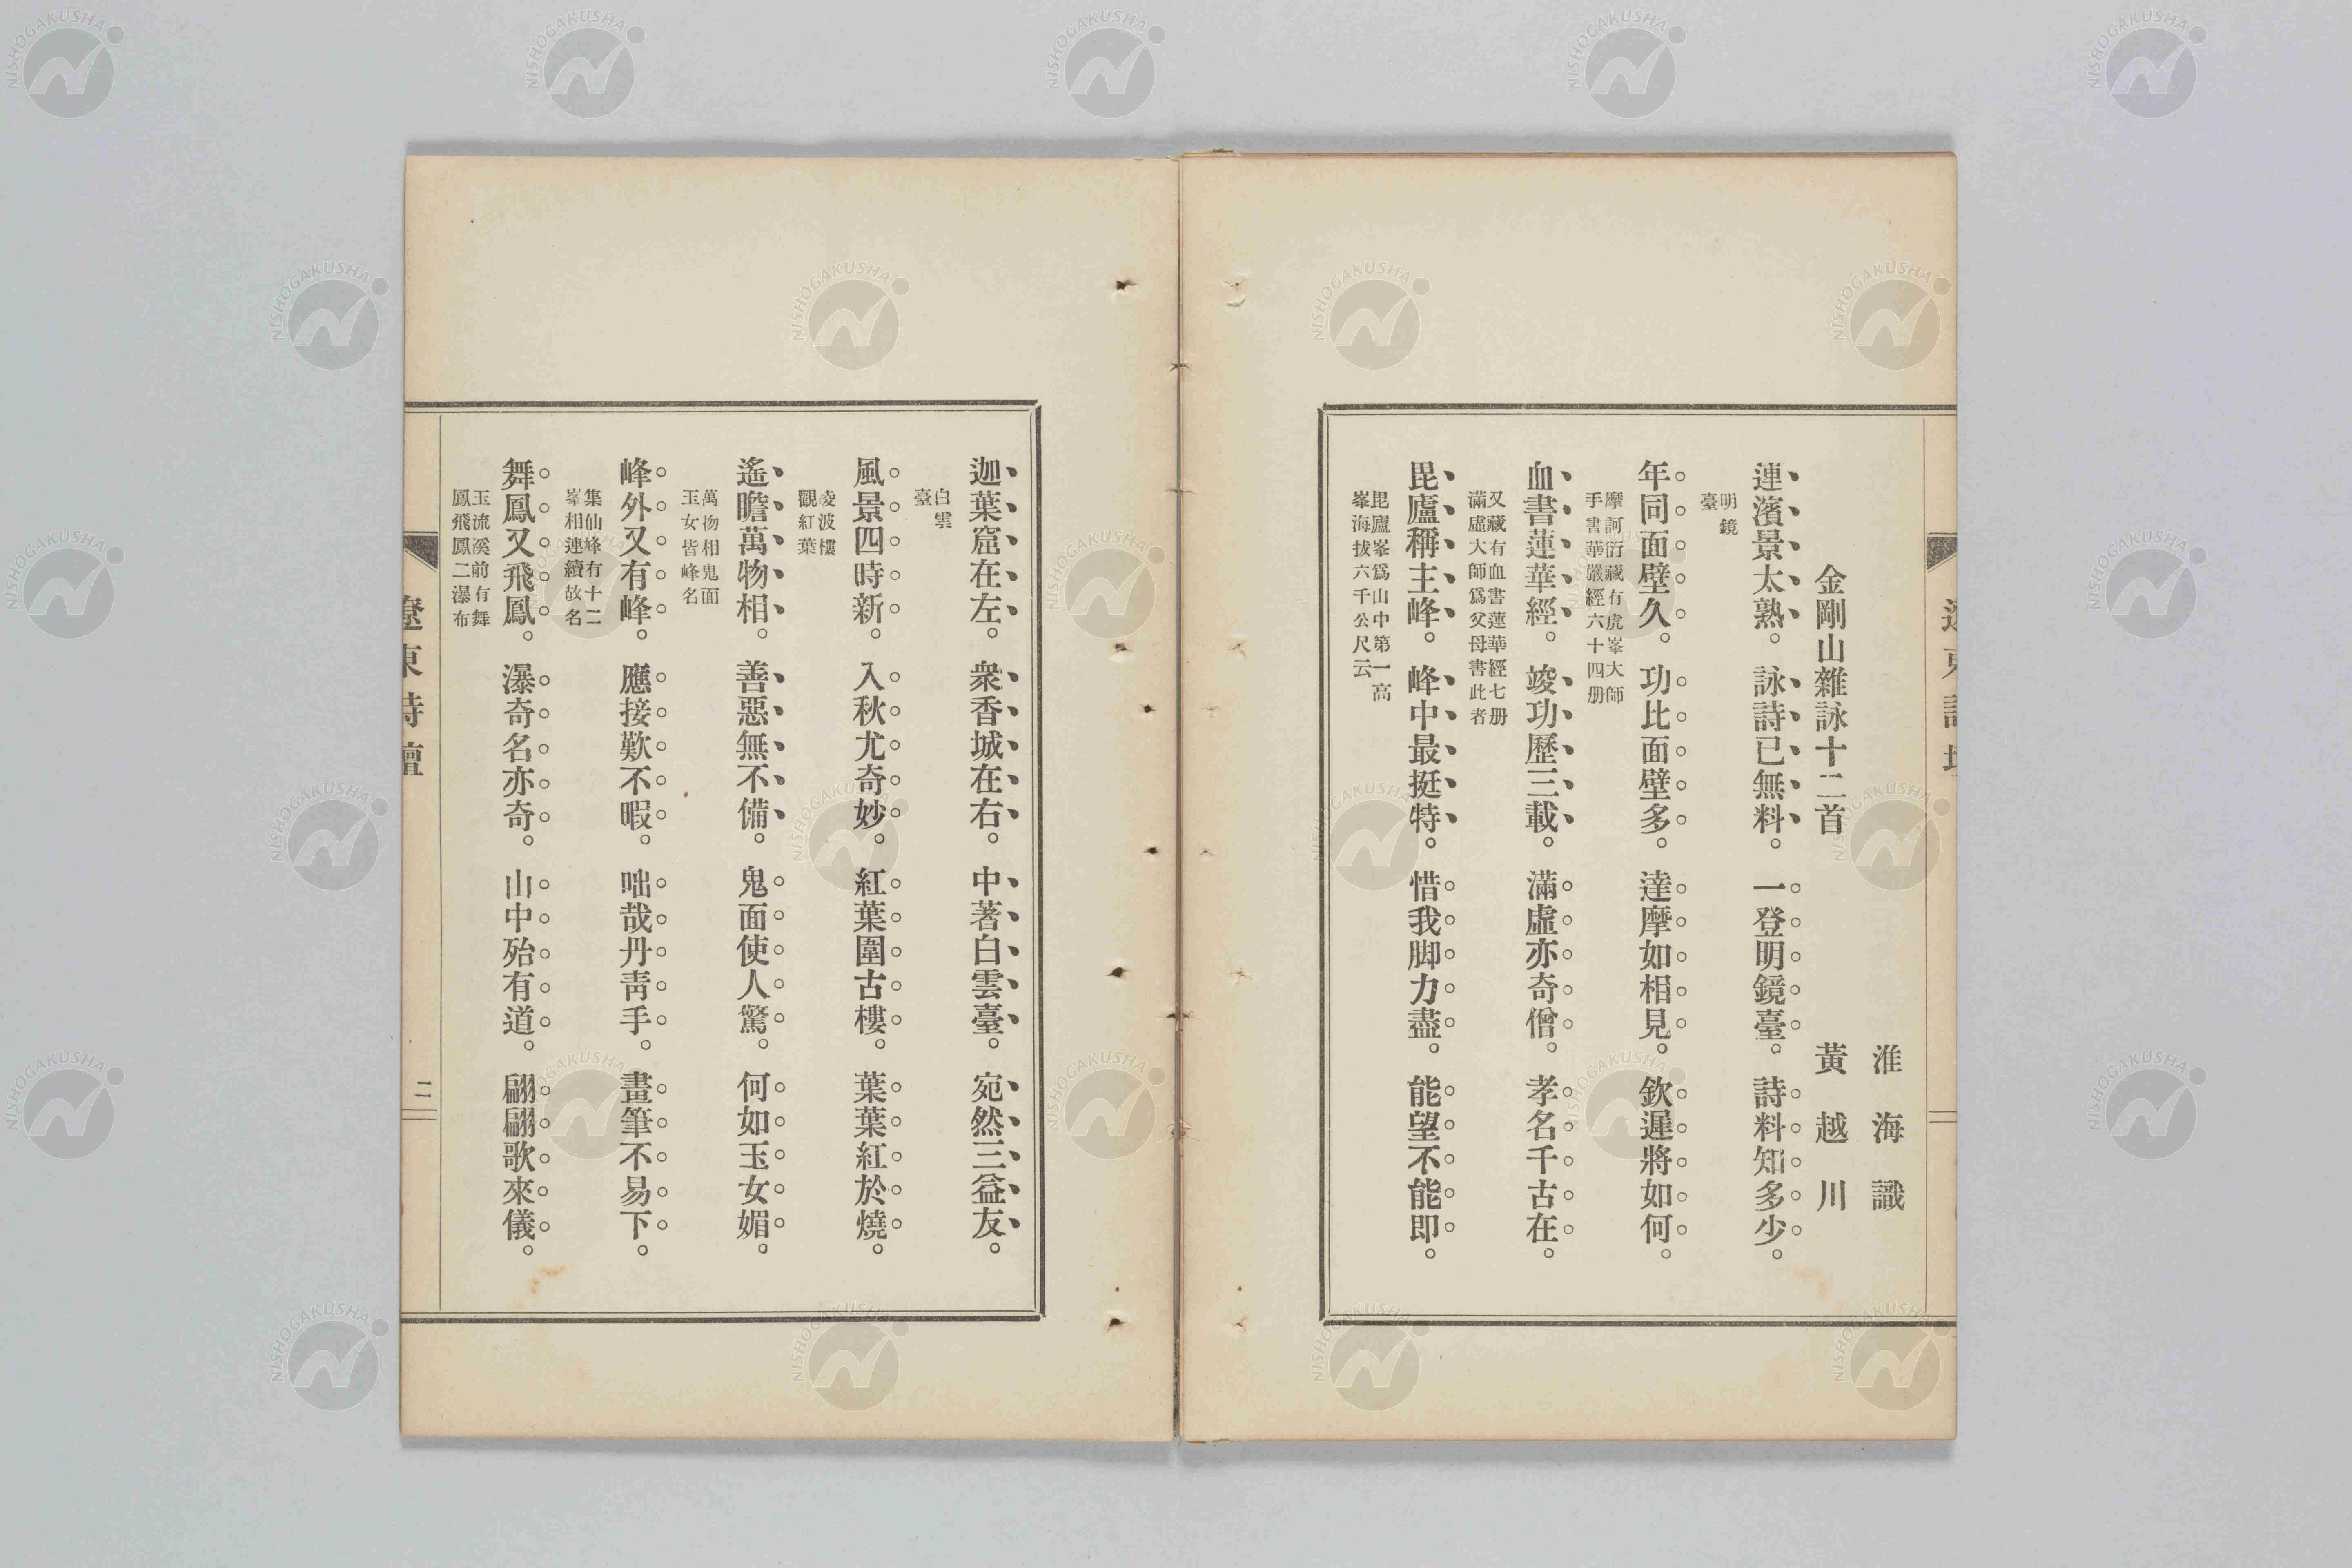 淮海識
金剛山雜詠十二首　黃越川
連濱景太熟。詠詩已無料。一登明鏡臺。詩料知多少。
明鏡
臺
年同面壁久。功比面壁多。達摩如相見。欽遲將如何。
摩訶衍藏有虎峯大師
手書華嚴經六十四册
血書蓮華經。竣功歷三載。滿虛亦奇僧。孝名千古在。
又藏有血書蓮華經七册
滿虛大師爲父母書此者
毘廬稱主峰。峰中最挺特。惜我脚力盡。能望不能即。
毘廬峯爲山中第一高
峯海拔六千公尺云
迦葉窟在左。衆香城在右。中著白雲臺。宛然三益友。
白雲
臺
風景四時新。入秋尤奇妙。紅葉圍古樓。葉葉紅於燒。
凌波樓
觀紅葉
遙瞻萬物相。善惡無不備。鬼面使人驚。何如玉女媚。
萬物相鬼面
玉女皆峰名
峰外又有峰。應接歎不暇。咄哉丹靑手。畫筆不易下。
集仙峰有十二
峯相連續故名
舞鳳又飛鳳。瀑奇名亦奇。山中殆有道。翩翩歌來儀。
玉流溪前有舞
鳳飛鳳二瀑布
遼東詩壇
二
NISHOGAKUSHA